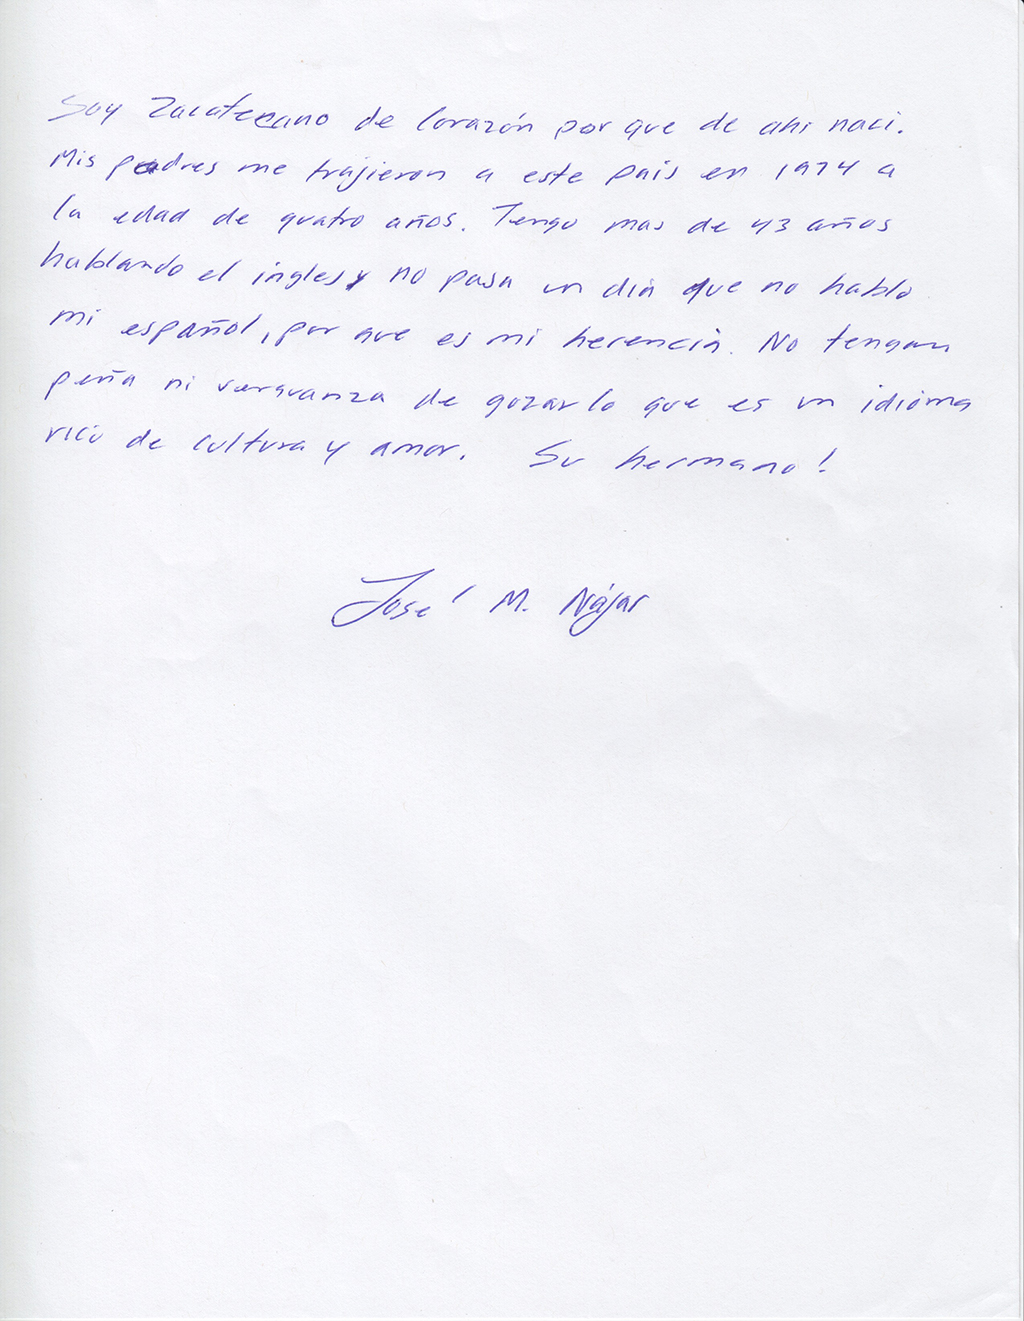 Soy Zacatecano de Corazón por que de ahi naci.
Mis padres me trajieron a este pais en 1974 a
la edad de quatro años. Tengo mas de 43 años
hablando el ingles y no pasa un dia que no hablo
mi español, por que es mi herencia. No tengan
peña ni verguanza de gozar lo que es un idioma
rico de cultura y amor. Su hermano!
José M. Nájar